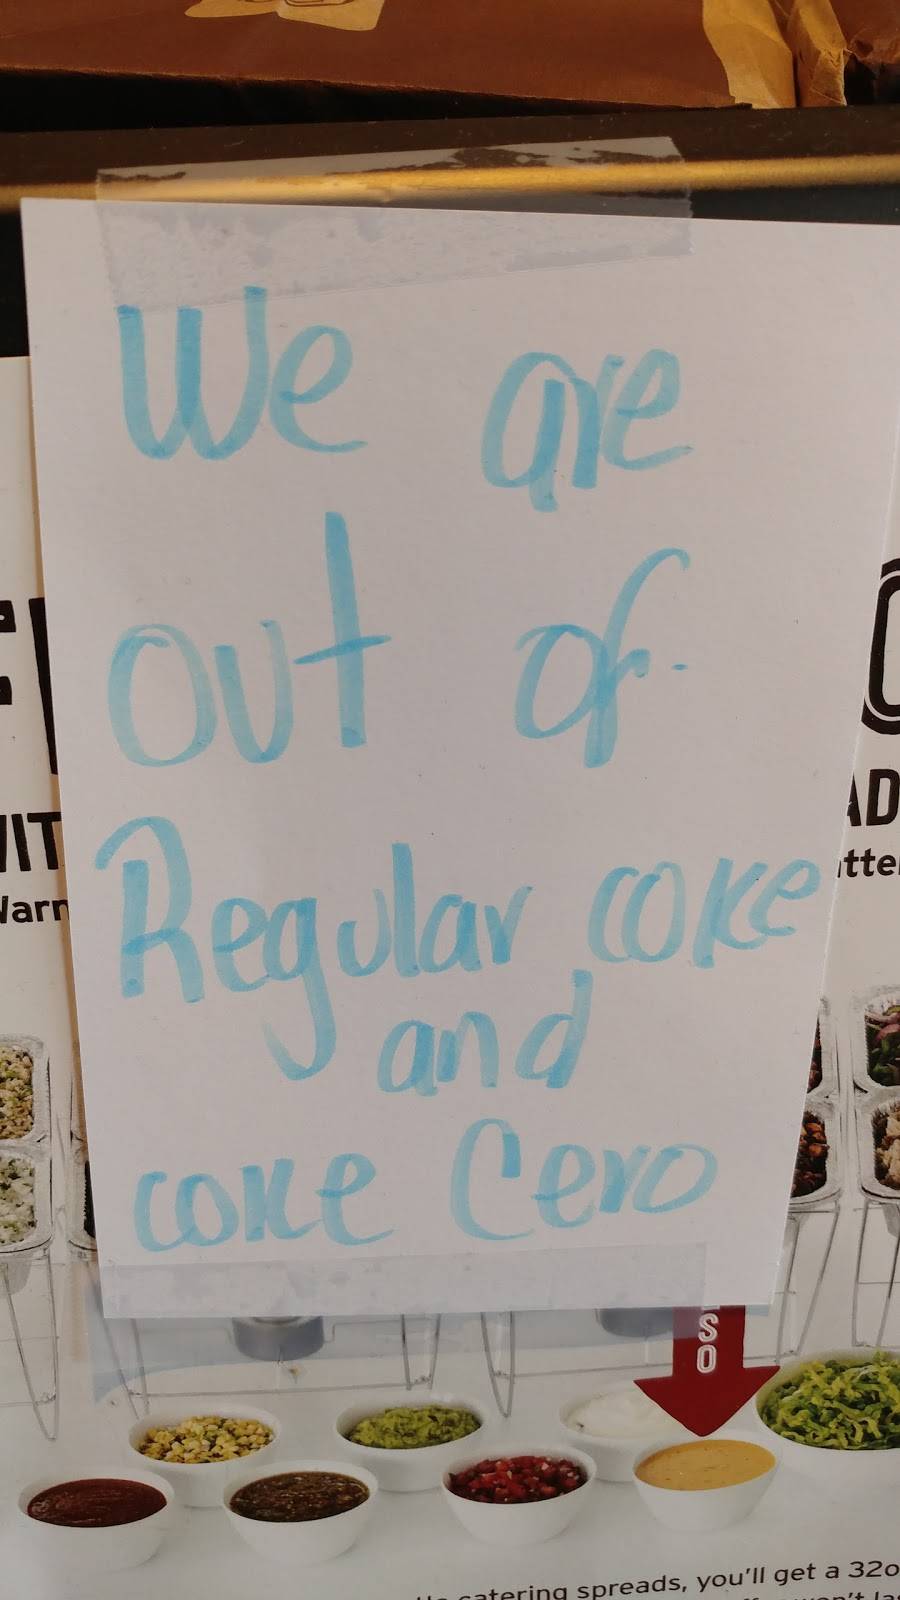 We are
out of
Regular coke
and
coke Cero
VIT
AD
Warn
atte
SO
catering spreads, you'll get a 32o
won't las